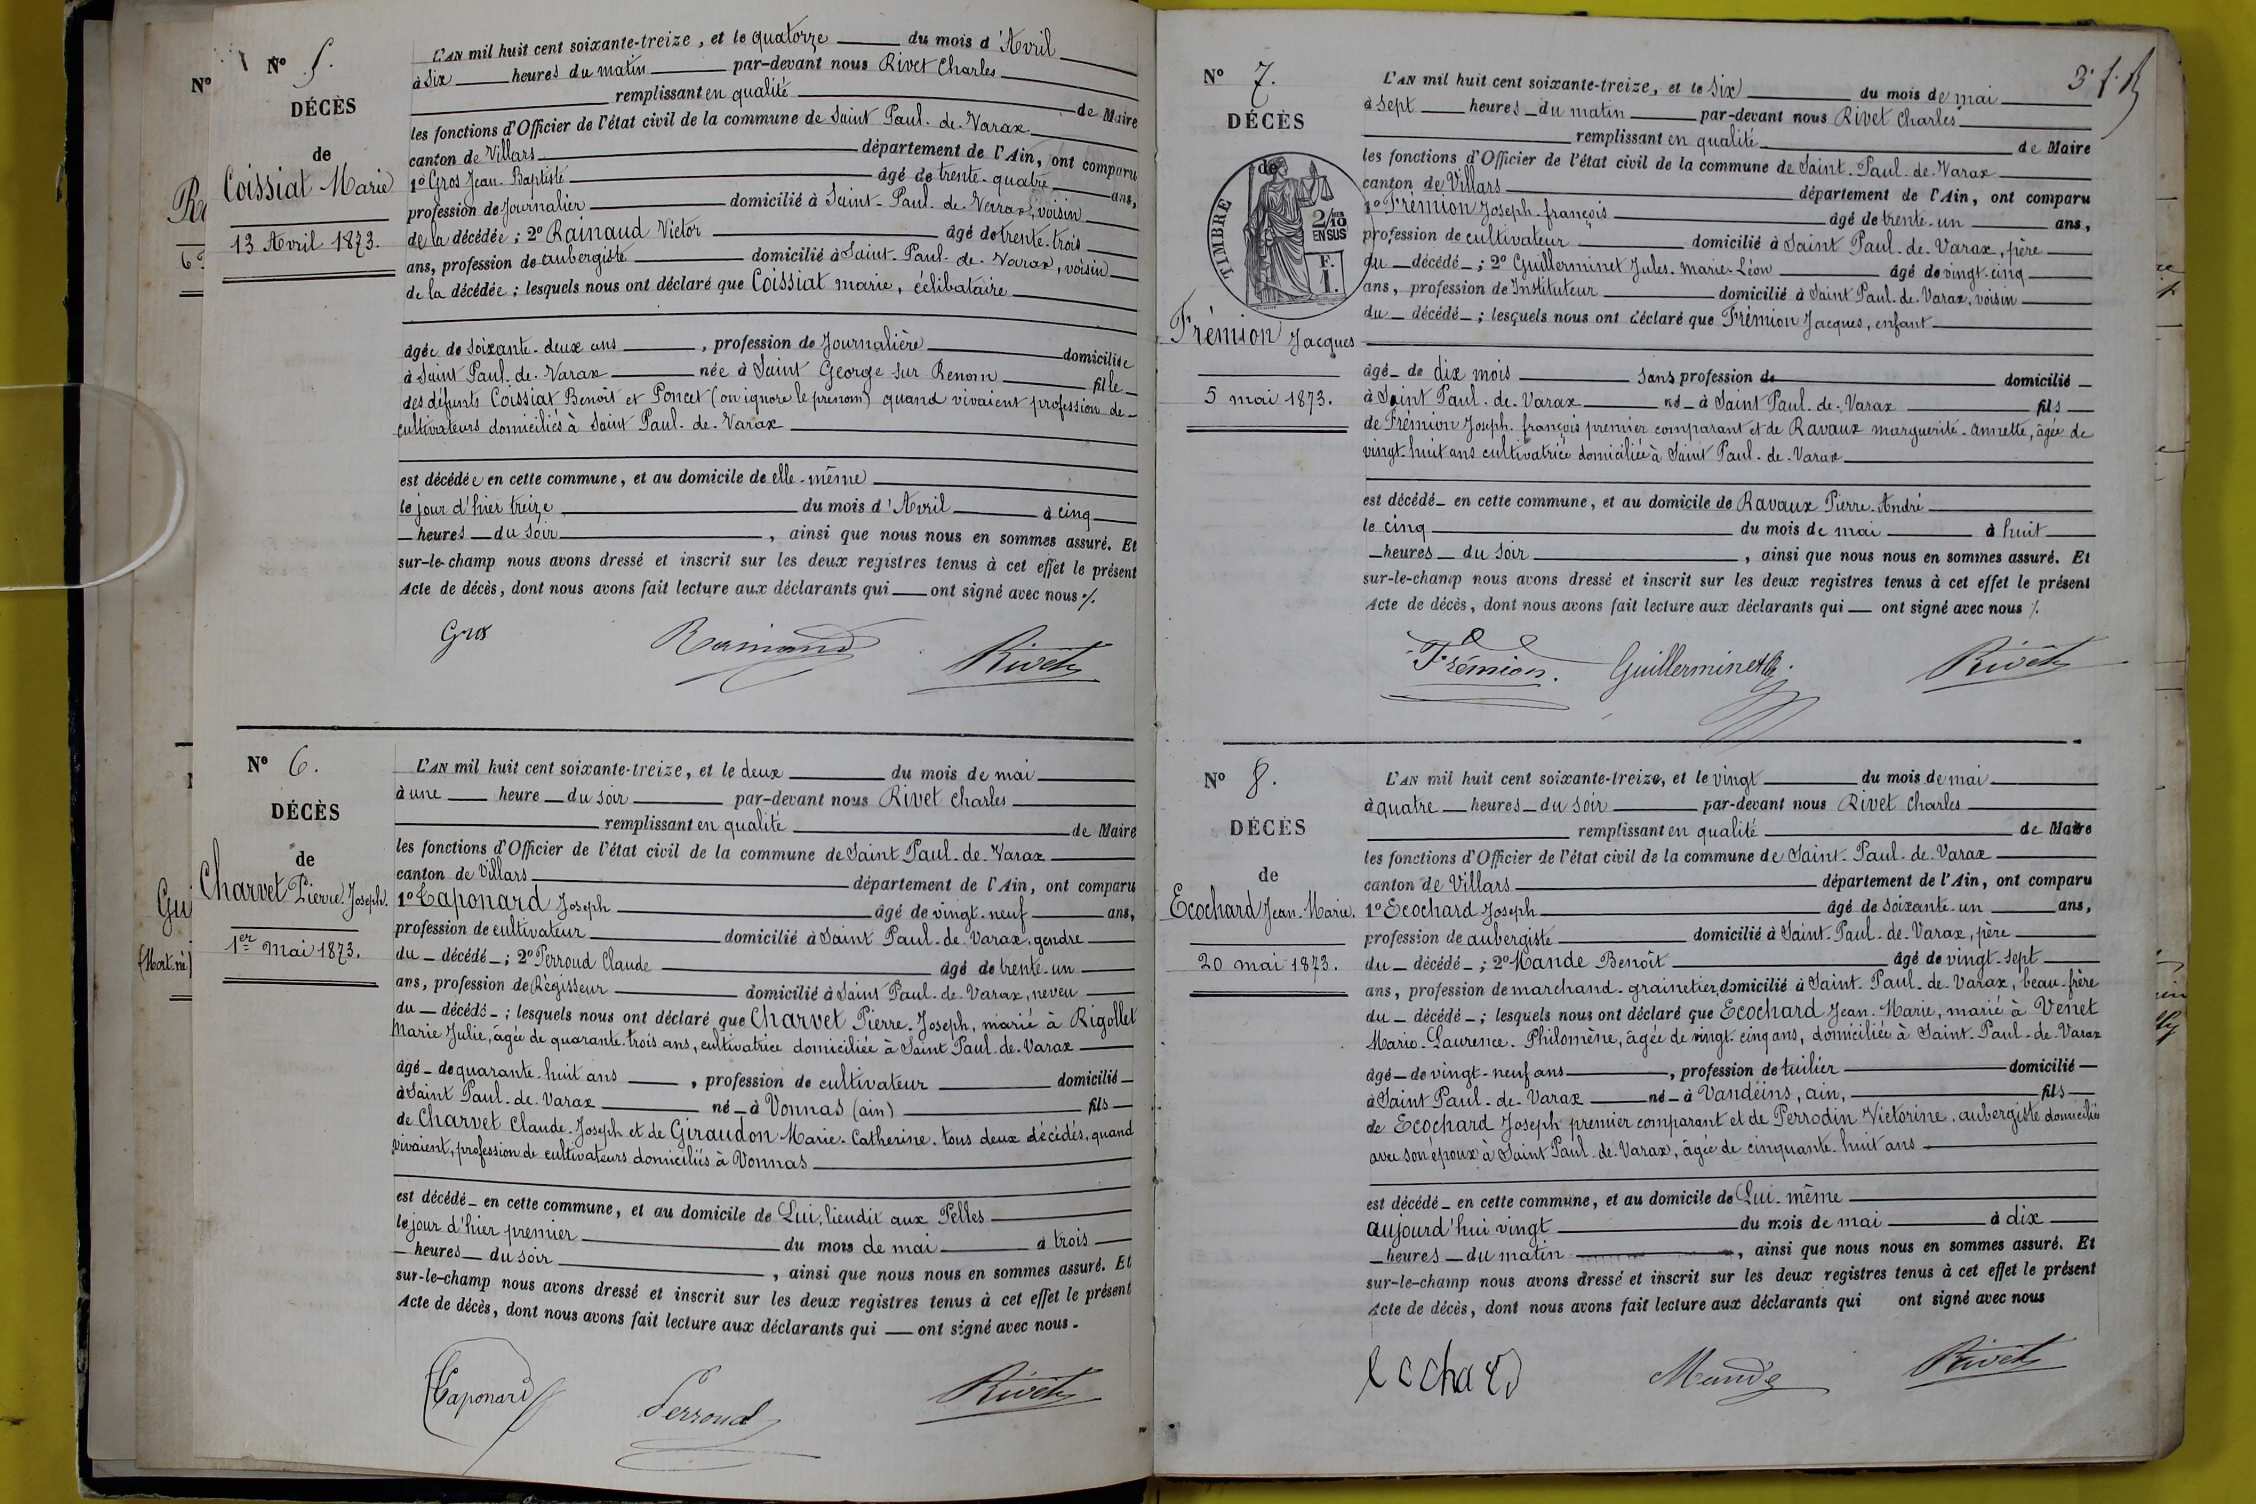 N° 5.
DÉCÈS
de
Coissiat Marie
13 Avril 1873.
L'AN mil huit cent soixante-treize, et le quatorze du mois d'Avril
à six heures du matin par-devant nous Rivet Charles
remplissant en qualité de Maire
les fonctions d'Officier de l'état civil de la commune de Saint Paul. de. Varax
canton de Villars département de l'Ain, ont comparu
1° Gros Jean. Baptiste âgé de trente-quatre ans,
profession de Journalier domicilié à Saint-Paul. de. Varax, voisin
de la décédée ; 2° Rainaud Victor âgé de trente-trois
ans, profession de aubergiste domicilié à Saint-Paul-de-Varax, voisin
de la décédée ; lesquels nous ont déclaré que Coissiat marie, célibataire
âgée de soixante-deux ans, profession de Journalière domicilise
à Saint Paul. de. Varax née à Saint George sur Renom fille
des défunts Coissiat Benoît et Poncet (on ignore le prénom) quand vivaient profession de
cultivateurs domiciliés à Saint Paul. de. Varax
est décédée en cette commune, et au domicile de elle-même
le jour d'hier treize du mois d'Avril à cinq
heures du soir, ainsi que nous nous en sommes assuré. Et
sur-le-champ nous avons dressé et inscrit sur les deux registres tenus à cet effet le présent
Acte de décès, dont nous avons fait lecture aux déclarants qui ont signé avec nous ./.
Gros Rainaud Rivet
N° 6.
DÉCÈS
de
Charvet Pierre. Joseph.
1er Mai 1873.
L'AN mil huit cent soixante-treize, et le deux du mois de mai
à une heure du soir par-devant nous Rivet Charles
remplissant en qualité de Maire
les fonctions d'Officier de l'état civil de la commune de Saint Paul. de. Varax
canton de Villars département de l'Ain, ont comparu
1° Taponard Joseph âgé de vingt-neuf ans,
profession de cultivateur domicilié à Saint Paul. de. Varax, gendre
du décédé ; 2° Perroud Claude âgé de trente-un
ans, profession de Régisseur domicilié à Saint Paul. de. Varax, neveu
du décédé ; lesquels nous ont déclaré que Charvet Pierre. Joseph, marié à Rigollet
Marie Julie, âgée de quarante-trois ans, cultivatrice domiciliée à Saint Paul. de. Varax
âgé de quarante-huit ans, profession de cultivateur domicilié
à Saint Paul. de. Varax né à Vonnas (ain) fils
de Charvet Claude. Joseph et de Giraudon Marie. Catherine. tous deux décédés, quand
vivaient, profession de cultivateurs domiciliés à Vonnas
est décédé en cette commune, et au domicile de Lui, lieudit aux Pelles
le jour d'hier premier du mois de mai à trois
heures du soir, ainsi que nous nous en sommes assuré. Et
sur-le-champ nous avons dressé et inscrit sur les deux registres tenus à cet effet le présent
Acte de décès, dont nous avons fait lecture aux déclarants qui ont signé avec nous.
Taponard Perroud Rivet
N° 7.
DÉCÈS
de
TIMBRE
2/10
EN SUS
F.
1.
Frémion Jacques
5 mai 1873.
L'AN mil huit cent soixante-treize, et le six du mois de mai
à sept heures du matin par-devant nous Rivet Charles
remplissant en qualité de Maire
les fonctions d'Officier de l'état civil de la commune de Saint. Paul. de. Varax
canton de Villars département de l'Ain, ont comparu
1° Frémion Joseph. françois âgé de trente-un ans,
profession de cultivateur domicilié à Saint Paul. de. Varax, père
du décédé ; 2° Guillerminet Jules. marie. Léon âgé de vingt-cinq
ans, profession de Instituteur domicilié à Saint Paul. de. Varax, voisin
du décédé ; lesquels nous ont déclaré que Frémion Jacques, enfant
âgé de dix mois sans profession de domicilié
à Saint Paul. de. Varax né à Saint Paul. de. Varax fils
de Frémion Joseph. françois premier comparant et de Ravaux marguerite. Annette, âgée de
vingt-huit ans cultivatrice domiciliée à Saint Paul. de. Varax
est décédé en cette commune, et au domicile de Ravaux Pierre. André
le cinq du mois de mai à huit
heures du soir, ainsi que nous nous en sommes assuré. Et
sur-le-champ nous avons dressé et inscrit sur les deux registres tenus à cet effet le présent
Acte de décès, dont nous avons fait lecture aux déclarants qui ont signé avec nous ./.
Frémion. Guillerminet Rivet
N° 8.
DÉCÈS
de
Ecochard Jean-Marie.
20 mai 1873.
L'AN mil huit cent soixante-treize, et le vingt du mois de mai
à quatre heures du soir par-devant nous Rivet Charles
remplissant en qualité de Maire
les fonctions d'Officier de l'état civil de la commune de Saint. Paul. de. Varax
canton de Villars département de l'Ain, ont comparu
1° Ecochard Joseph âgé de soixante-un ans,
profession de aubergiste domicilié à Saint. Paul. de. Varax, père
du décédé ; 2° Mande Benoît âgé de vingt-sept
ans, profession de marchand-grainetier, domicilié à Saint. Paul. de. Varax, beau-frère
du décédé ; lesquels nous ont déclaré que Ecochard Jean. Marie, marié à Venet
Marie. Laurence. Philomène, âgée de vingt-cinq ans, domiciliée à Saint. Paul. de. Varax
âgé de vingt-neuf ans, profession de tuilier domicilié
à Saint Paul. de. Varax né à Vandeins, ain, fils
de Ecochard Joseph premier comparant et de Perrodin Victorine. aubergiste domiciliée
avec son époux à Saint Paul. de. Varax, âgée de cinquante-huit ans
est décédé en cette commune, et au domicile de Lui-même
aujourd'hui vingt du mois de mai à dix
heures du matin, ainsi que nous nous en sommes assuré. Et
sur-le-champ nous avons dressé et inscrit sur les deux registres tenus à cet effet le présent
Acte de décès, dont nous avons fait lecture aux déclarants qui ont signé avec nous
Ecochard Mande Rivet